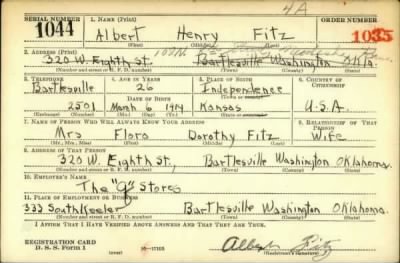 4A
SERIAL NUMBER 1. NAME (Print) ORDER NUMBER
1044 Albert Henry Fitz 1035
(First) (Middle) (Last)
2. ADDRESS (Print)
320 W. Eighth St., Bartlesville Washington Okla.
(Number and street or R. F. D. number) (Town) (County) (State)
3. TELEPHONE 4. AGE IN YEARS 5. PLACE OF BIRTH 6. COUNTRY OF CITIZENSHIP
Bartlesville 26 Independence
DATE OF BIRTH (Town or county)
2501 March 6 1914 Kansas U.S.A
(Exchange) (Number) (Mo.) (Day) (Yr.) (State or country)
7. NAME OF PERSON WHO WILL ALWAYS KNOW YOUR ADDRESS 8. RELATIONSHIP OF THAT PERSON
Mrs Flora Dorothy Fitz Wife
(Mr., Mrs., Miss) (First) (Middle) (Last)
9. ADDRESS OF THAT PERSON
320 W. Eighth St., Bartlesville Washington Oklahoma.
(Number and street or R. F. D. number) (Town) (County) (State)
10. EMPLOYER'S NAME
The "9" Stores
11. PLACE OF EMPLOYMENT OR BUSINESS
333 South Keeler Bartlesville Washington Oklahoma.
(Number and street or R. F. D. number) (Town) (County) (State)
I AFFIRM THAT I HAVE VERIFIED ABOVE ANSWERS AND THAT THEY ARE TRUE.
REGISTRATION CARD
D. S. S. Form 1 (over) Albert Fitz
(Registrant's signature)